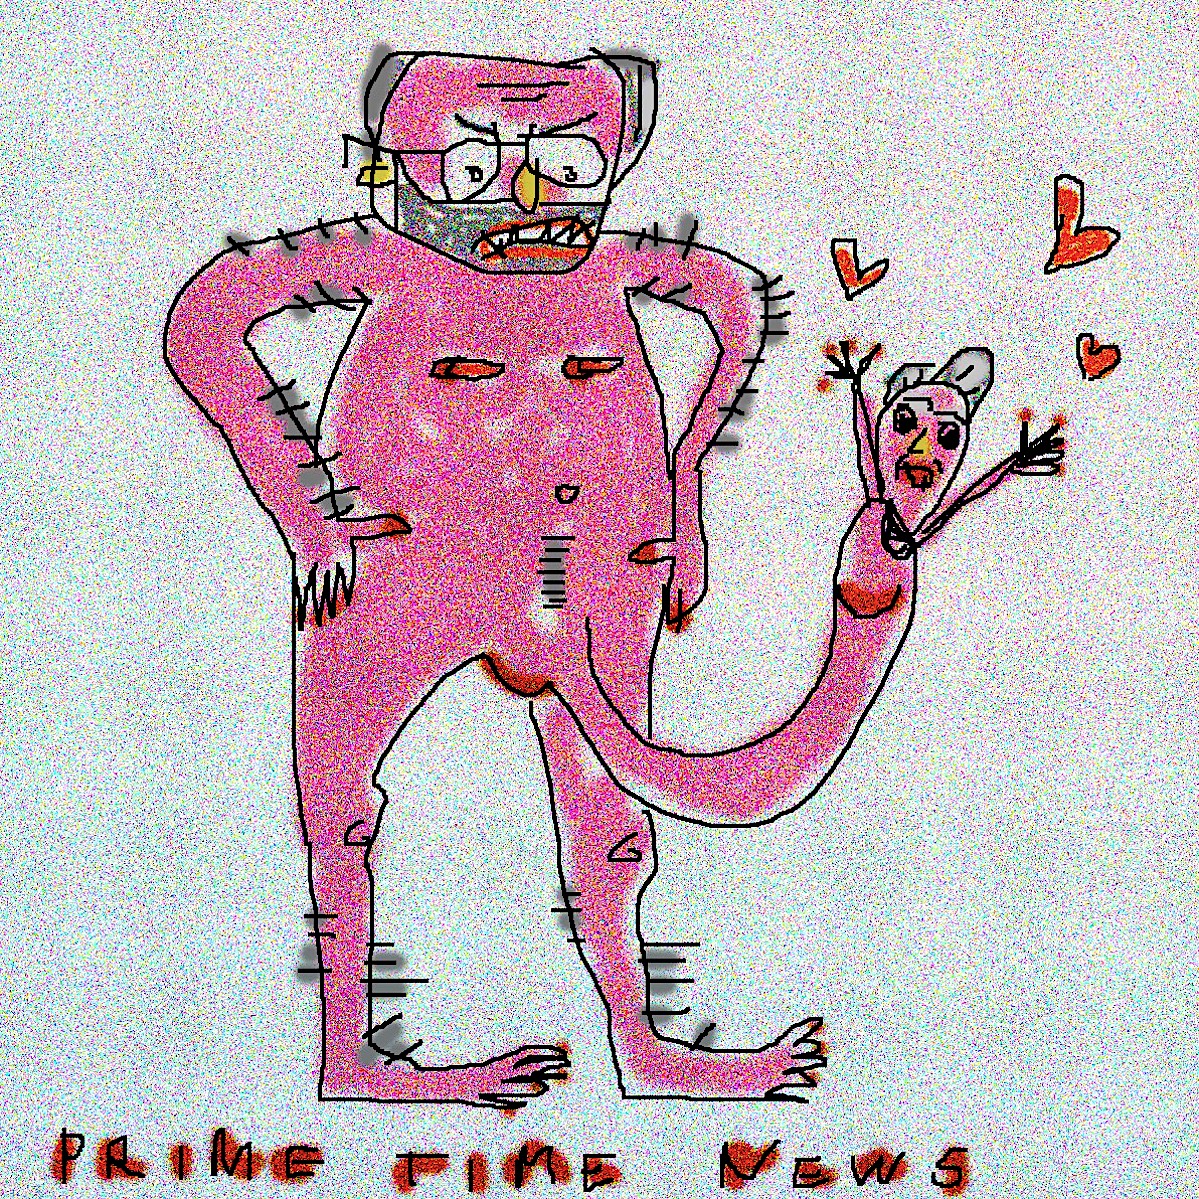 PRIME TIME NEWS